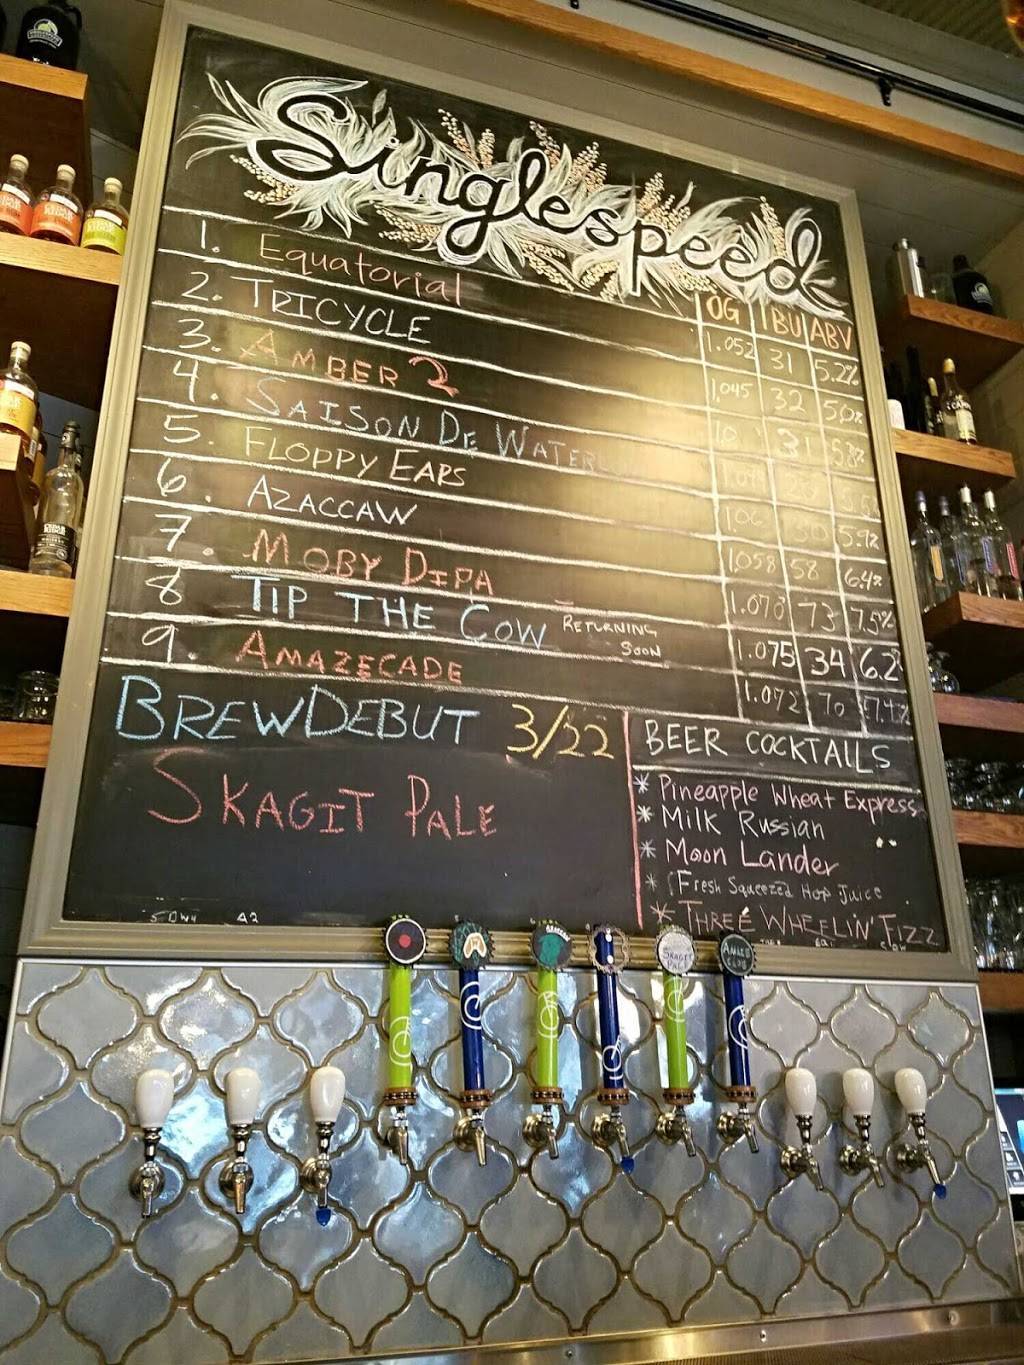 Singlespeed
OG IBU ABV
1. Equatorial 1.052 31 5.2%
2. TRICYCLE 1.045 32 5.0%
3. AMBER 2 31 5.8%
4. SAISON DE
5. FLOPPY EARS 5.9%
6. AZACCAW 1.058 58 6.4%
7. MOBY DIPA 1.070 73 7.5%
8 TIP THE COW RETURNING SOON 1.075 34 6.2
9. AMAZECADE 1.072 70 7.4%
BREWDEBUT 3/22
SKAGIT PALE
BEER COCKTAILS
* Pineapple Wheat Express
* Milk Russian
* Moon Lander
* Fresh Squeezed Hop Juice
* THREE WHEELIN' FIZZ
SKAGIT PALE